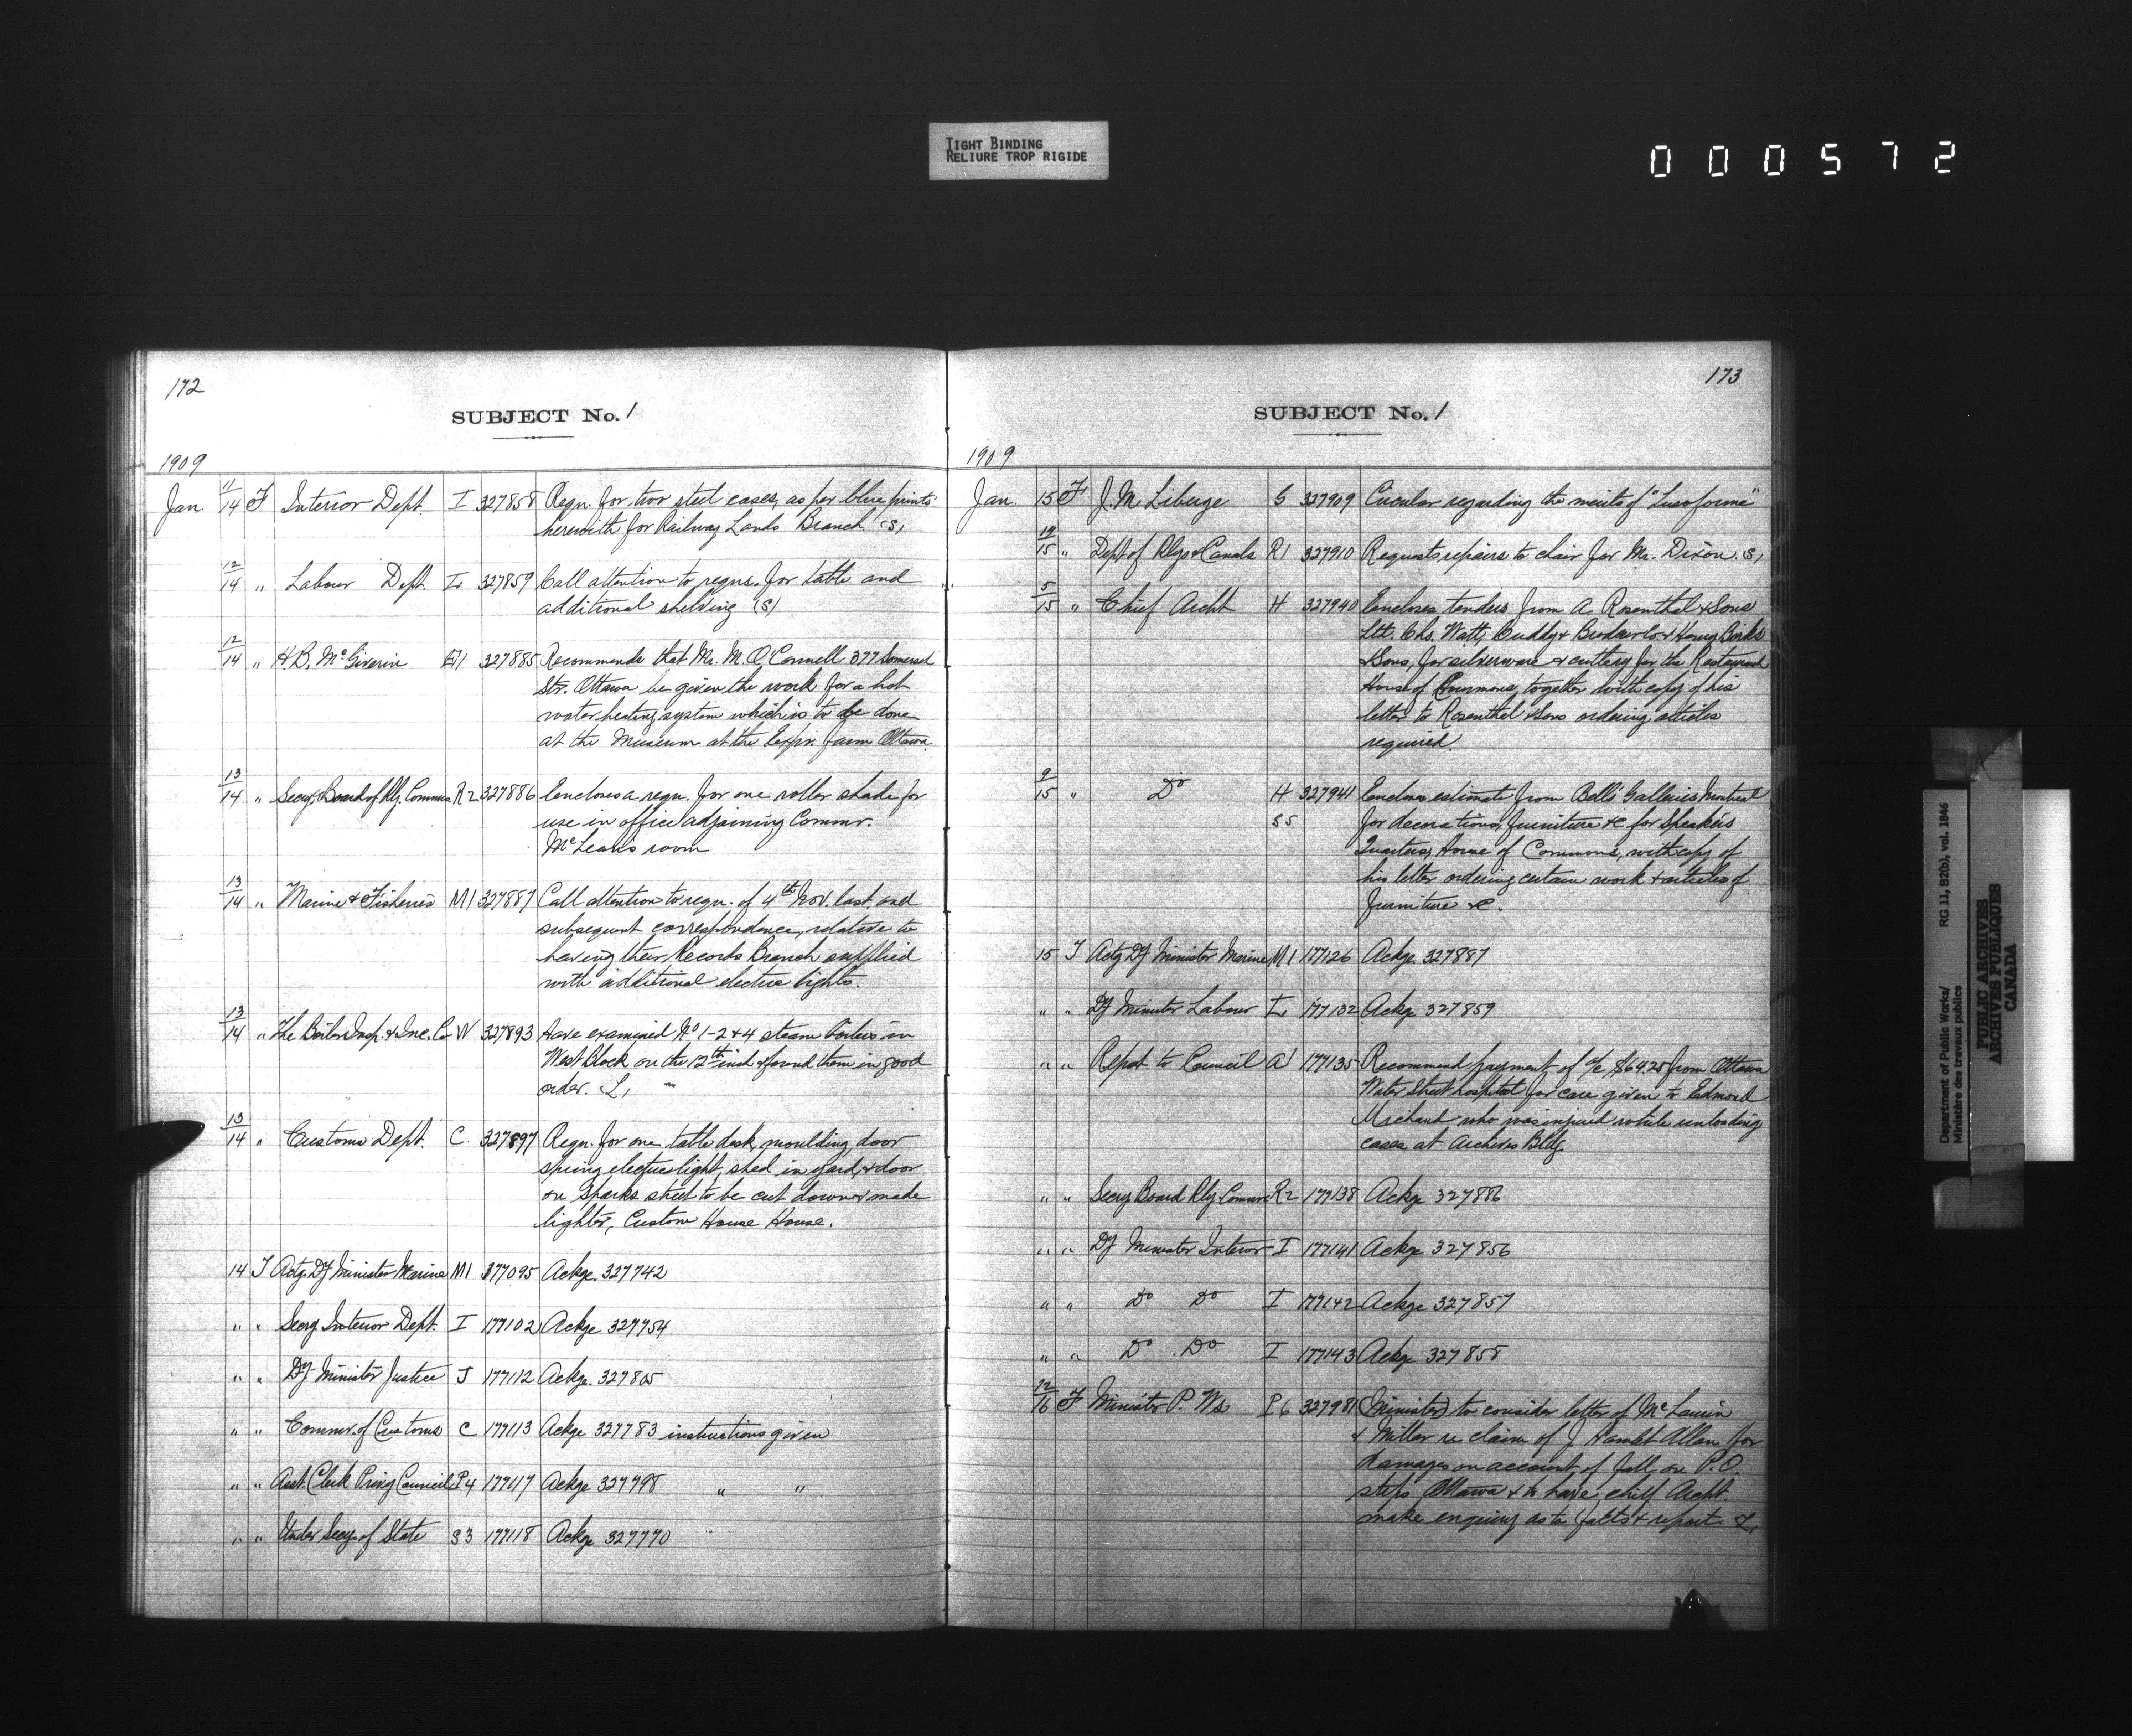 TIGHT BINDING
RELIURE TROP RIGIDE
000572
172
SUBJECT No. 1
1909
Jan 11/14 F Interior Dept. I 327858 Reqn. for two steel cases, as per blue prints
herewith for Railway Lands Branch (S)
12/14 " Labour Dept. L 327859 Call attention to reqns. for table and
additional shelving (S)
12/14 " H.B. McGiverin E1 327885 Recommends that Mr. M. O'Connell 377 Somerset
Str. Ottawa be given the work for a hot
water heating system which is to be done
at the Museum at the Expr. farm Ottawa
13/14 " Secy. Board of Rly. Commrs R2 327886 Encloses a reqn. for one roller shade for
use in office adjoining Commr.
McLean's room
13/14 " Marine & Fisheries M1 327887 Call attention to reqn. of 4th Nov. last and
subsequent correspondence, relative to
having their Records Branch supplied
with additional electric lights.
13/14 " The Boiler Insp. & Ins. Co W 327893 Have examined No 1-2 & 4 steam boilers in
West Block on the 12th inst & found them in good
order. L,
13/14 " Customs Dept. C. 327897 Reqn. for one table desk, moulding, door
spring electric light, shed in yard, & door
on Sparks street to be cut down & made
lighter, Custom House House.
14 T Actg. Dy Minister Marine M1 177095 Ackge. 327742
" " Secy Interior Dept. I 177102 Ackge 327754
" " Dy Minister Justice J 177112 Ackge. 327805
" " Commr. of Customs C 177113 Ackge 327783 instructions given
" " Asst. Clerk Privy Council P4 177117 Ackge 327798 " "
" " Under Secy. of State S3 177118 Ackge 327770
173
SUBJECT No. 1
1909
Jan. 15 F J.M. Liberge G 327909 Circular regarding the merits of "Lusoforme"
14/15 " Dept of Rlys & Canals R1 327910 Requests repairs to chair for Mr. Dixon. (S)
5/15 " Chief Archt H 327940 Encloses tenders from A Rosenthal & Sons
Ltd. Chs. Watt, Cuddy & Co & Henry Birks
& Sons, for silverware & cutlery for the Restaurant
House of Commons, together with copy of his
letter to Rosenthal & Sons ordering articles
required.
9/15 " Do H 327941 Encloses estimate from Bell's Galleries Montreal
S5 for decorations, furniture &c for Speaker's
Quarters, House of Commons, with copy of
his letter ordering certain work & articles of
furniture &c.
15 T Actg Dy Minister Marine M1 177126 Ackge. 327887
" " Dy Minister Labour L 177132 Ackge 327859
" " Report to Council A1 177135 Recommend payment of a/c $64.25 from Ottawa
Water Street hospital for care given to Edmond
Michaud who was injured while unloading
cases at Archives Bldg.
" " Secy Board Rly Commrs R2 177138 Ackge 327886
" " Dy Minister Interior I 177141 Ackge 327856
" " Do Do I 177142 Ackge 327857
" " Do Do I 177143 Ackge 327858
12/16 F Minister P. Ws P6 327981 (Minister) to consider letter of McLaurin
& Millar re claim of J Hamlet Allan for
damages on account of fall on P.O.
steps Ottawa & to have chief Archt.
make enquiry as to facts & report. L,
Department of Public Works/ RG 11, B2(b), vol. 1846
Ministère des travaux publics
PUBLIC ARCHIVES
ARCHIVES PUBLIQUES
CANADA